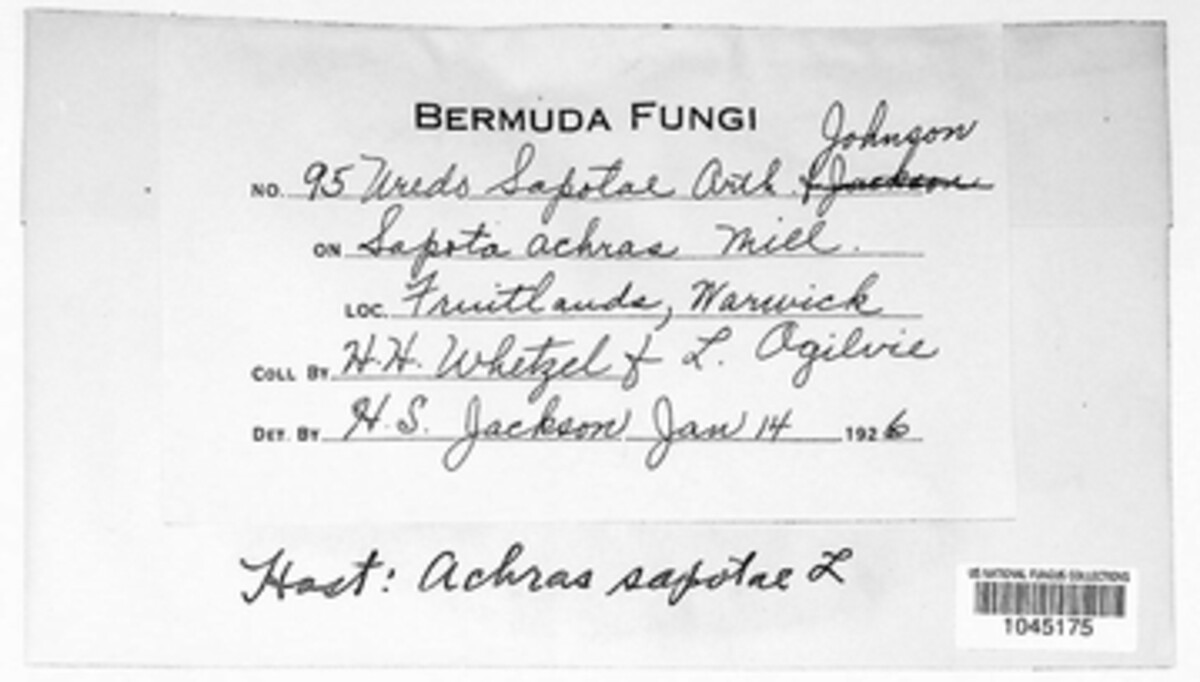 BERMUDA FUNGI
Johnson
NO. 95 Uredo Sapotae Arth. & Jackson
ON Sapota achras Mill.
LOC. Fruitlands, Warwick
COLL BY H.H. Whetzel & L. Ogilvie
DET. BY H.S. Jackson Jan 14 1926
Host: Achras sapotae L
US NATIONAL FUNGUS COLLECTIONS
1045175